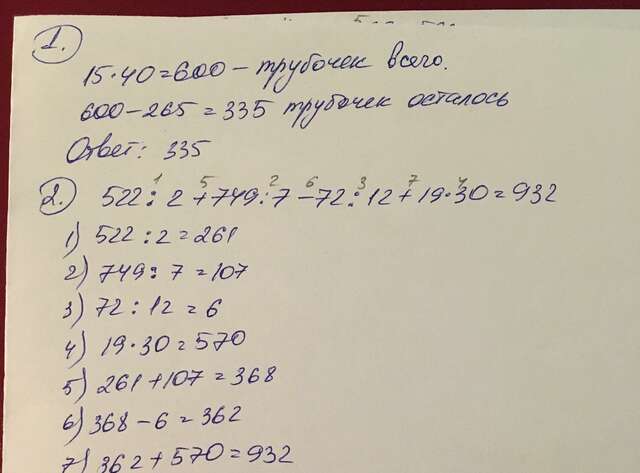 1.
15·40=600 – трубочек всего.
600–265=335 трубочек осталось
Ответ: 335
1 5 2 6 3 7 4
2. 522:2+749:7–72:12+19·30=932
1) 522:2=261
2) 749:7=107
3) 72:12=6
4) 19·30=570
5) 261+107=368
6) 368–6=362
7) 362+570=932